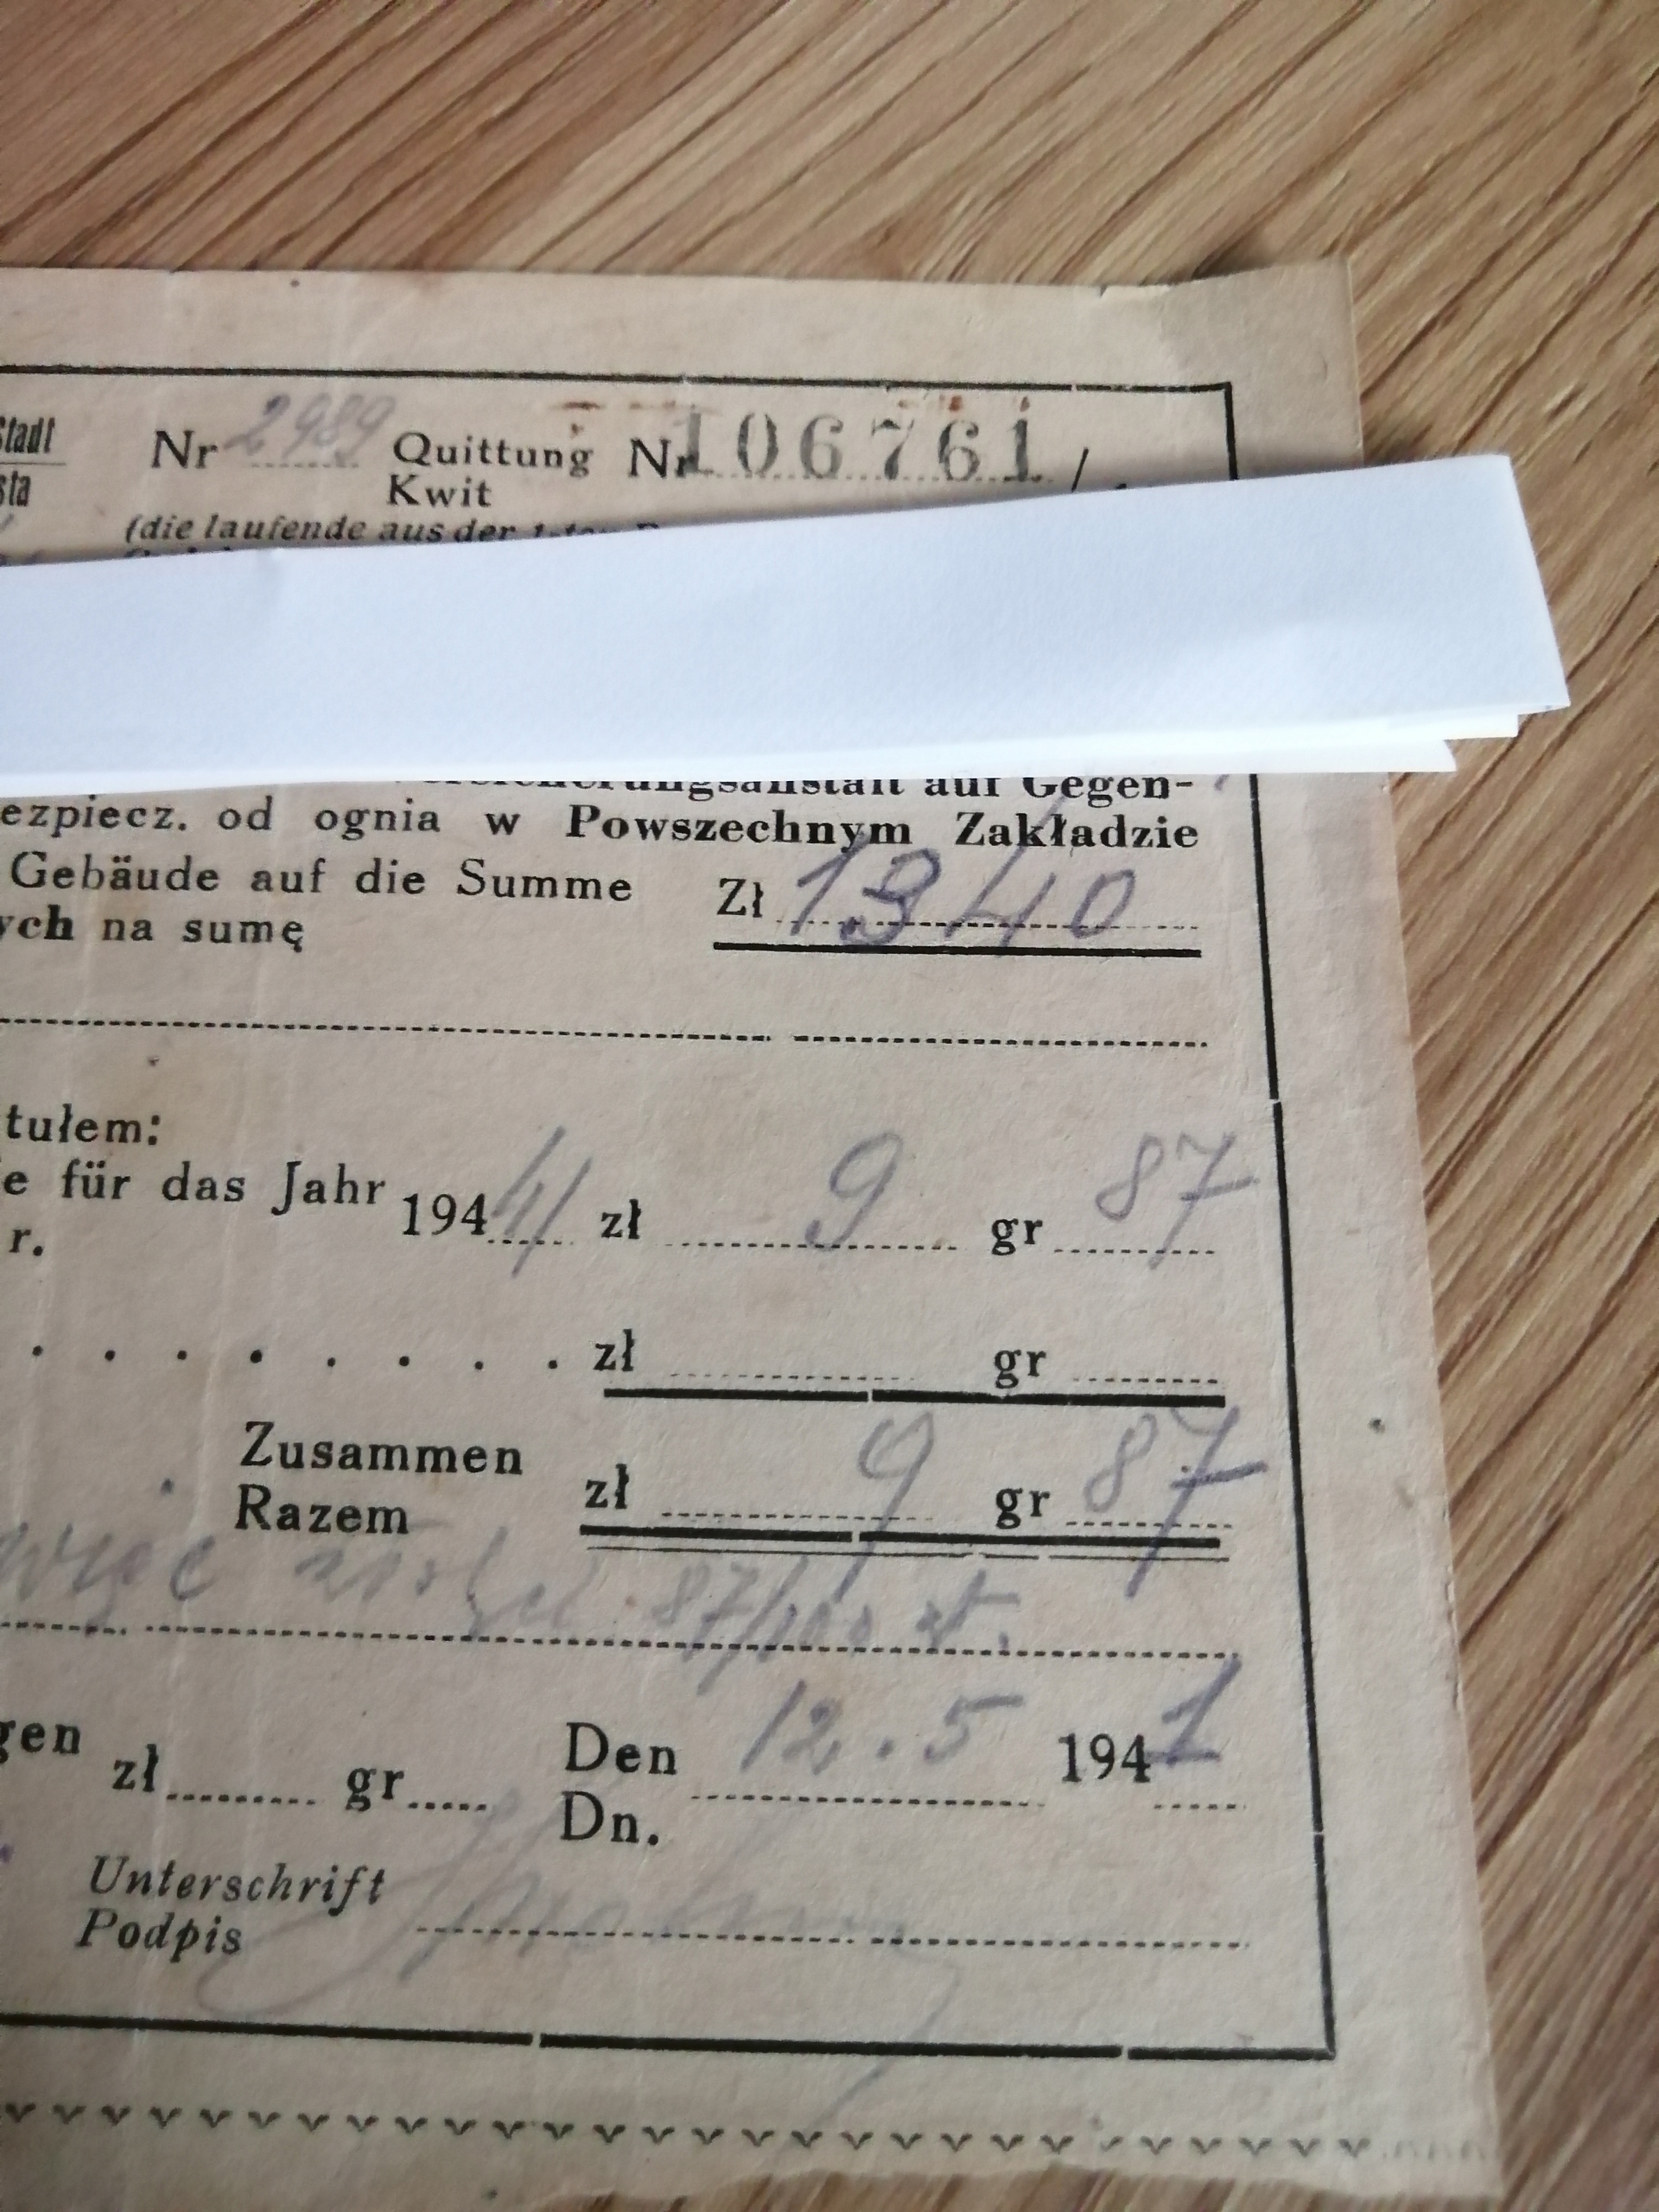 Stadt
Nr 2989 Quittung Nr 106761 /
sta Kwit
(die laufende aus der 1-ten
ersicherungsanstalt auf Gegen-
ezpiecz. od ognia w Powszechnym Zakładzie
Gebäude auf die Summe Zł 1340
ych na sumę
tułem:
e für das Jahr 1941 zł 9 gr 87
r.
. . . . . . . . zł gr
Zusammen
Razem zł 9 gr 87
więc złotych 87/100 zł.
gen zł gr Den 12.5 1941
Dn.
Unterschrift
Podpis